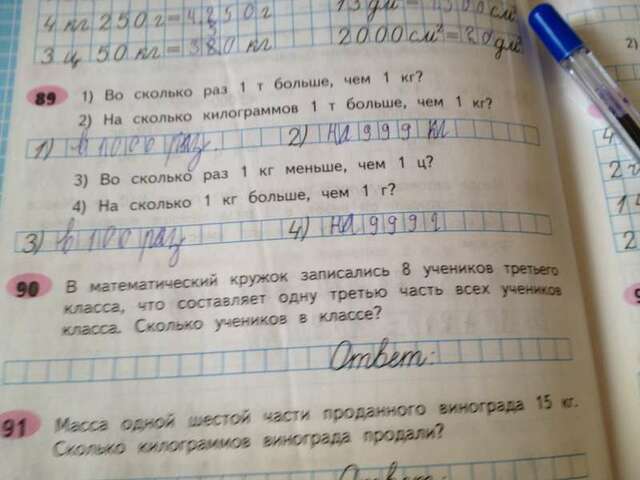 4 кг 250 г = 4250 г
3 ц 50 кг = 350 кг
15 дм² = 1500 см²
2000 см² = 20 дм²
2)
89 1) Во сколько раз 1 т больше, чем 1 кг?
2) На сколько килограммов 1 т больше, чем 1 кг?
1) в 1000 раз. 2) на 999 кг
3) Во сколько раз 1 кг меньше, чем 1 ц?
4) На сколько 1 кг больше, чем 1 г?
3) в 100 раз 4) на 999 г
90 В математический кружок записались 8 учеников третьего
класса, что составляет одну третью часть всех учеников
класса. Сколько учеников в классе?
Ответ:
91 Масса одной шестой части проданного винограда 15 кг.
Сколько килограммов винограда продали?
Ответ: